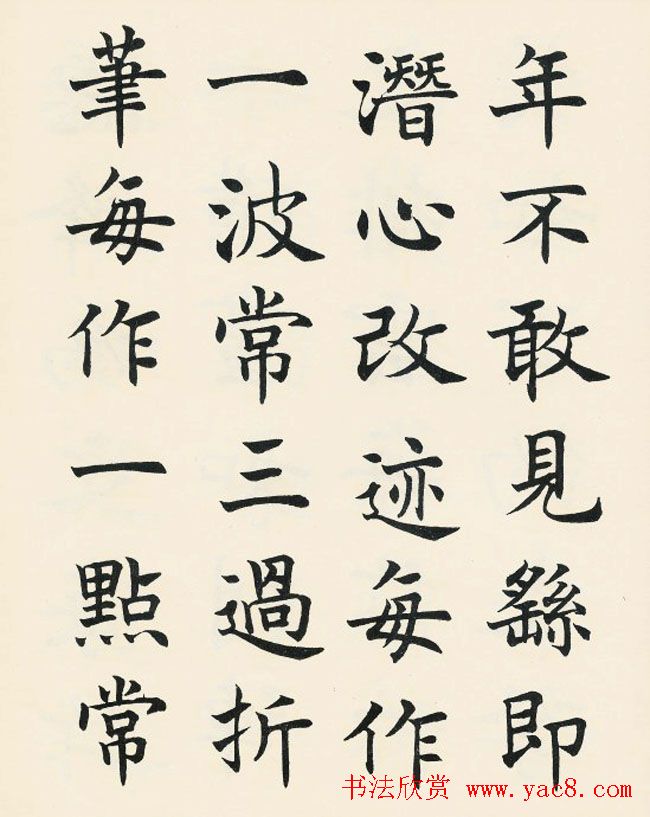 年不敢見繇即
潛心改迹每作
一波常三過折
筆每作一點常
书法欣赏 www.yac8.com